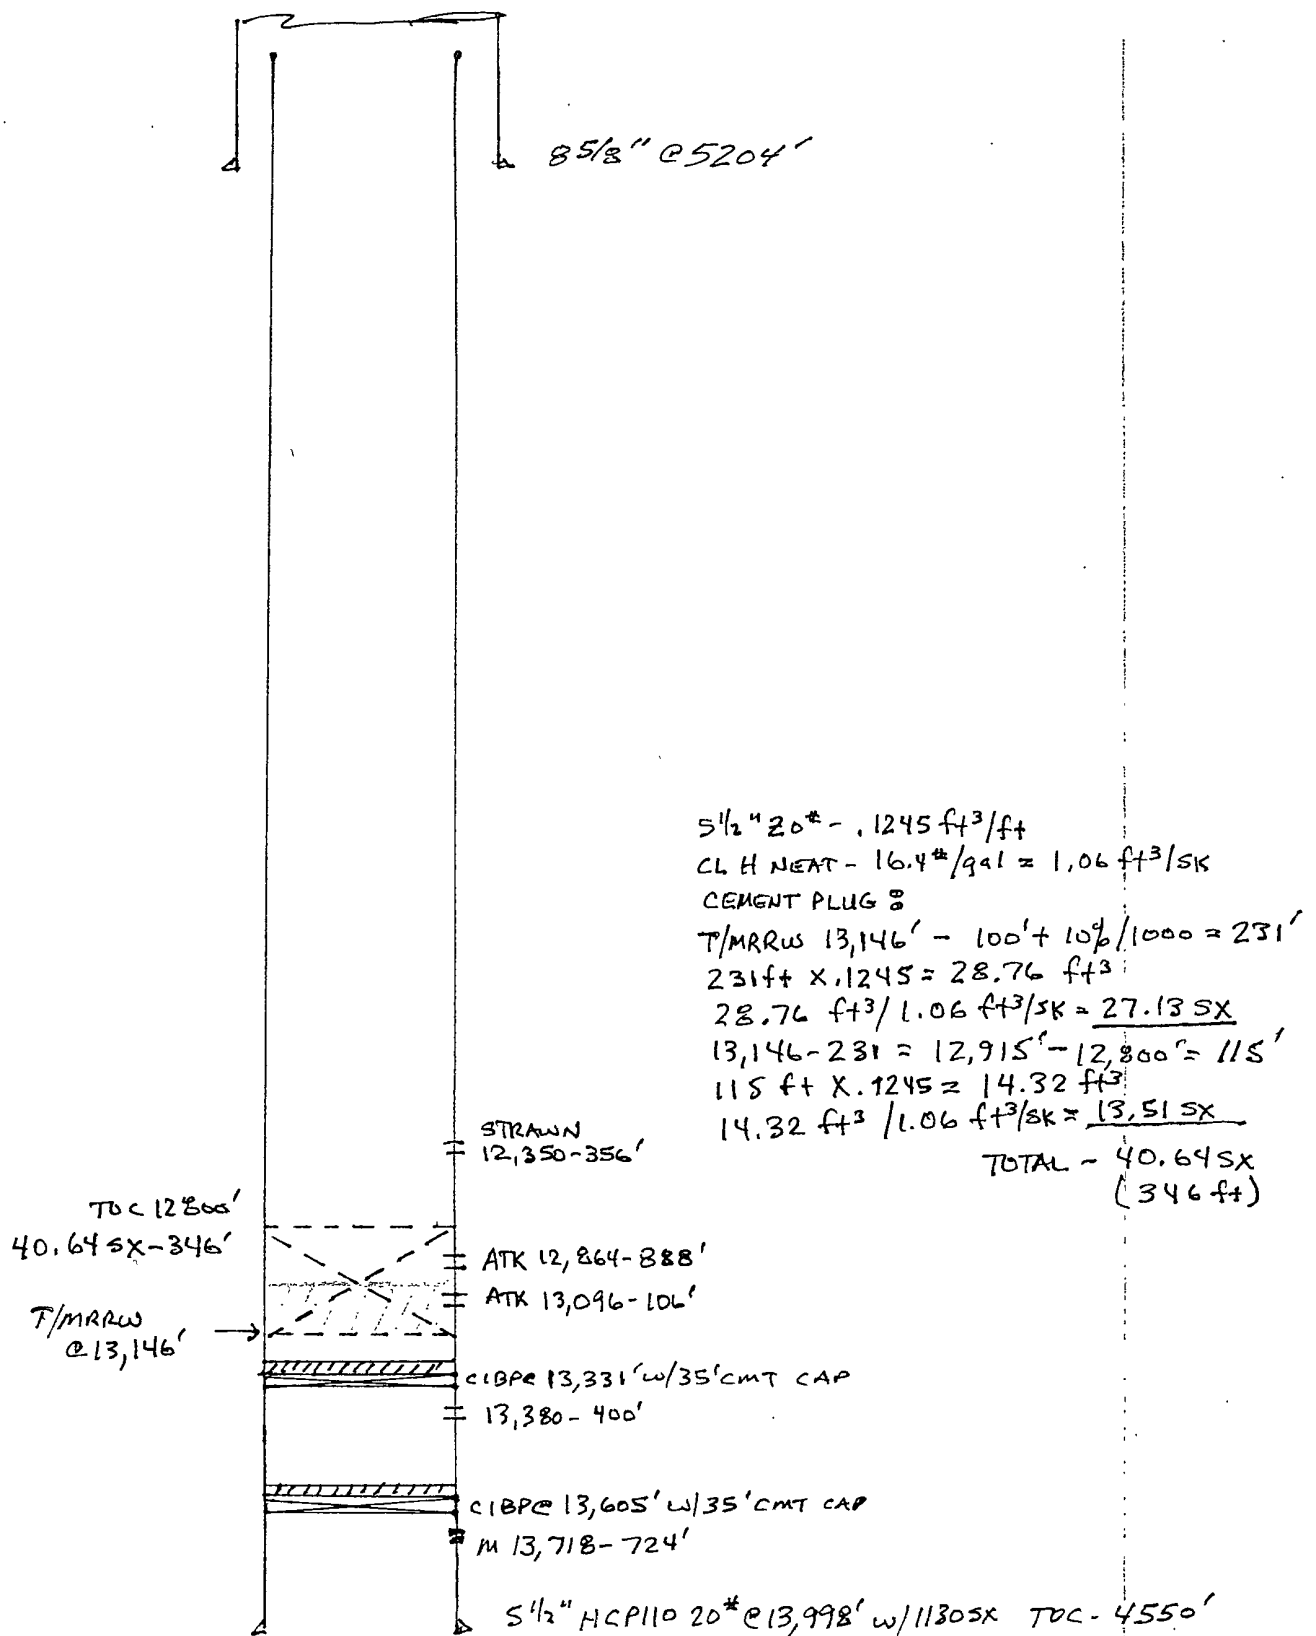 8 5/8" @ 5204'
5 1/2" 20# - .1245 ft³/ft
CL H NEAT - 16.4#/gal = 1.06 ft³/SK
CEMENT PLUG :
T/MRRW 13,146' - 100' + 10%/1000 = 231'
231ft X .1245 = 28.76 ft³
28.76 ft³/1.06 ft³/SK = 27.13 SX
13,146-231 = 12,915' - 12,800' = 115'
115 ft X .1245 = 14.32 ft³
14.32 ft³ /1.06 ft³/SK = 13.51 SX
TOTAL - 40.64 SX
(346 ft)
STRAWN
12,350-356'
TOC 12800'
40.64 SX-346'
ATK 12,864-888'
ATK 13,096-106'
T/MRRW
@ 13,146'
CIBP@ 13,331' w/35' CMT CAP
13,380-400'
CIBP@ 13,605' w/35' CMT CAP
M 13,718-724'
5 1/2" HCP110 20# @ 13,998' w/1130SX TOC - 4550'